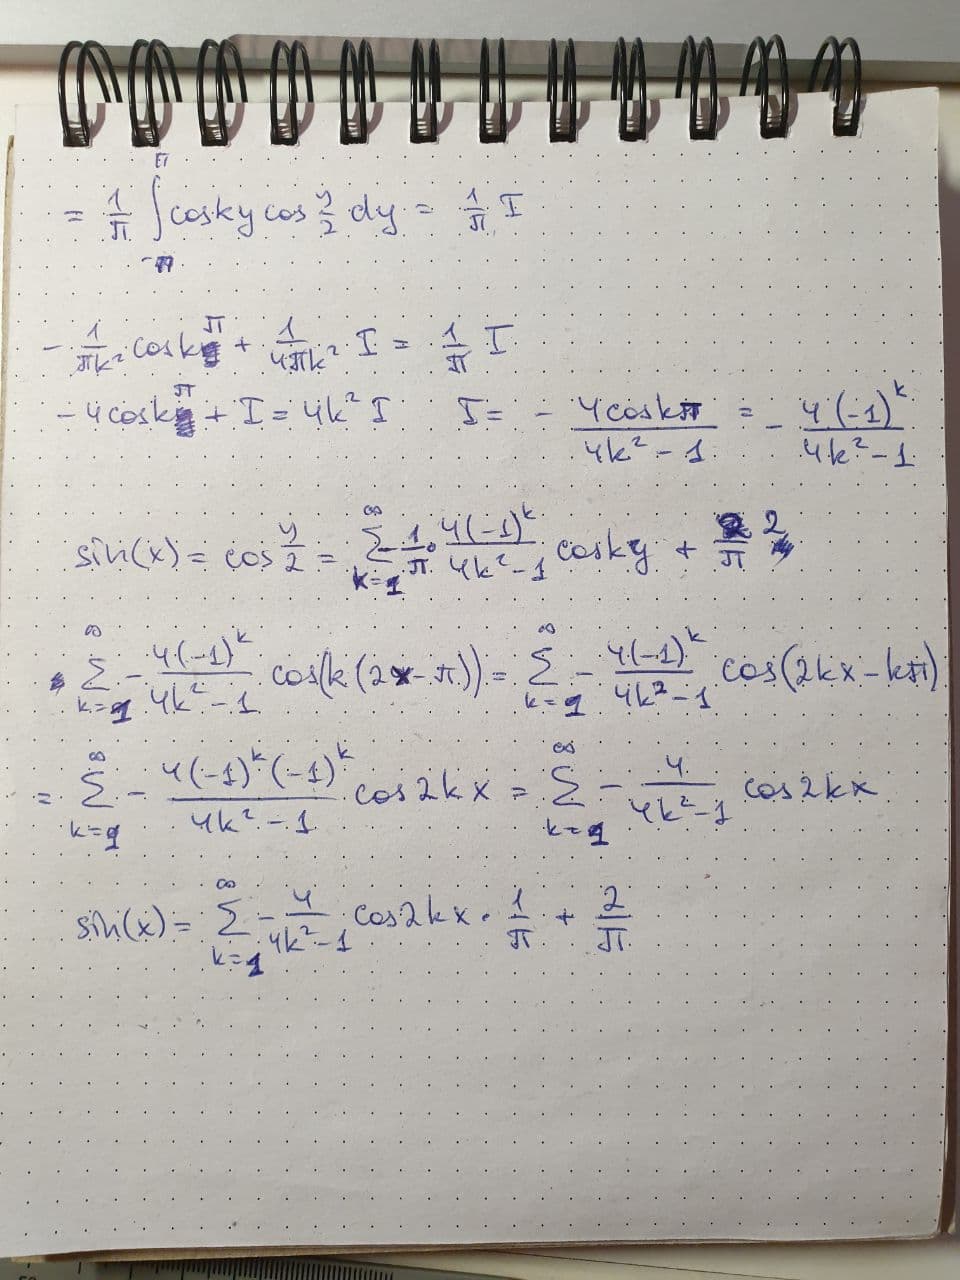 = 1/π ∫_{-π}^{π} cosky cos y/2 dy = 1/π I
- 1/πk² coskπ + 1/4πk² I = 1/π I
- 4coskπ + I = 4k² I I = - 4coskπ/4k² - 1 = - 4(-1)^k/4k² - 1
sin(x) = cos y/2 = ∑_{k=1}^{∞} - 1/π · 4(-1)^k/4k² - 1 cosky + 2/π
∑_{k=1}^{∞} - 4(-1)^k/4k² - 1 cos(k(2x - π)) = ∑_{k=1}^{∞} - 4(-1)^k/4k² - 1 cos(2kx - kπ)
= ∑_{k=1}^{∞} - 4(-1)^k(-1)^k/4k² - 1 cos2kx = ∑_{k=1}^{∞} - 4/4k² - 1 cos2kx
sin(x) = ∑_{k=1}^{∞} - 4/4k² - 1 cos2kx · 1/π + 2/π